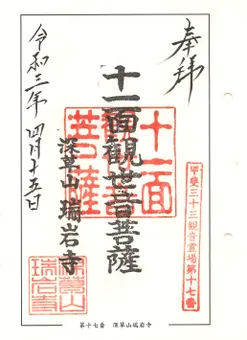 奉拝
甲斐三十三観音霊場第十七番
十一面
観世音
菩薩
十一面観世音菩薩
深草山 瑞岩寺
令和三年四月十五日
深草山
瑞岩寺
第十七番 深草山瑞岩寺